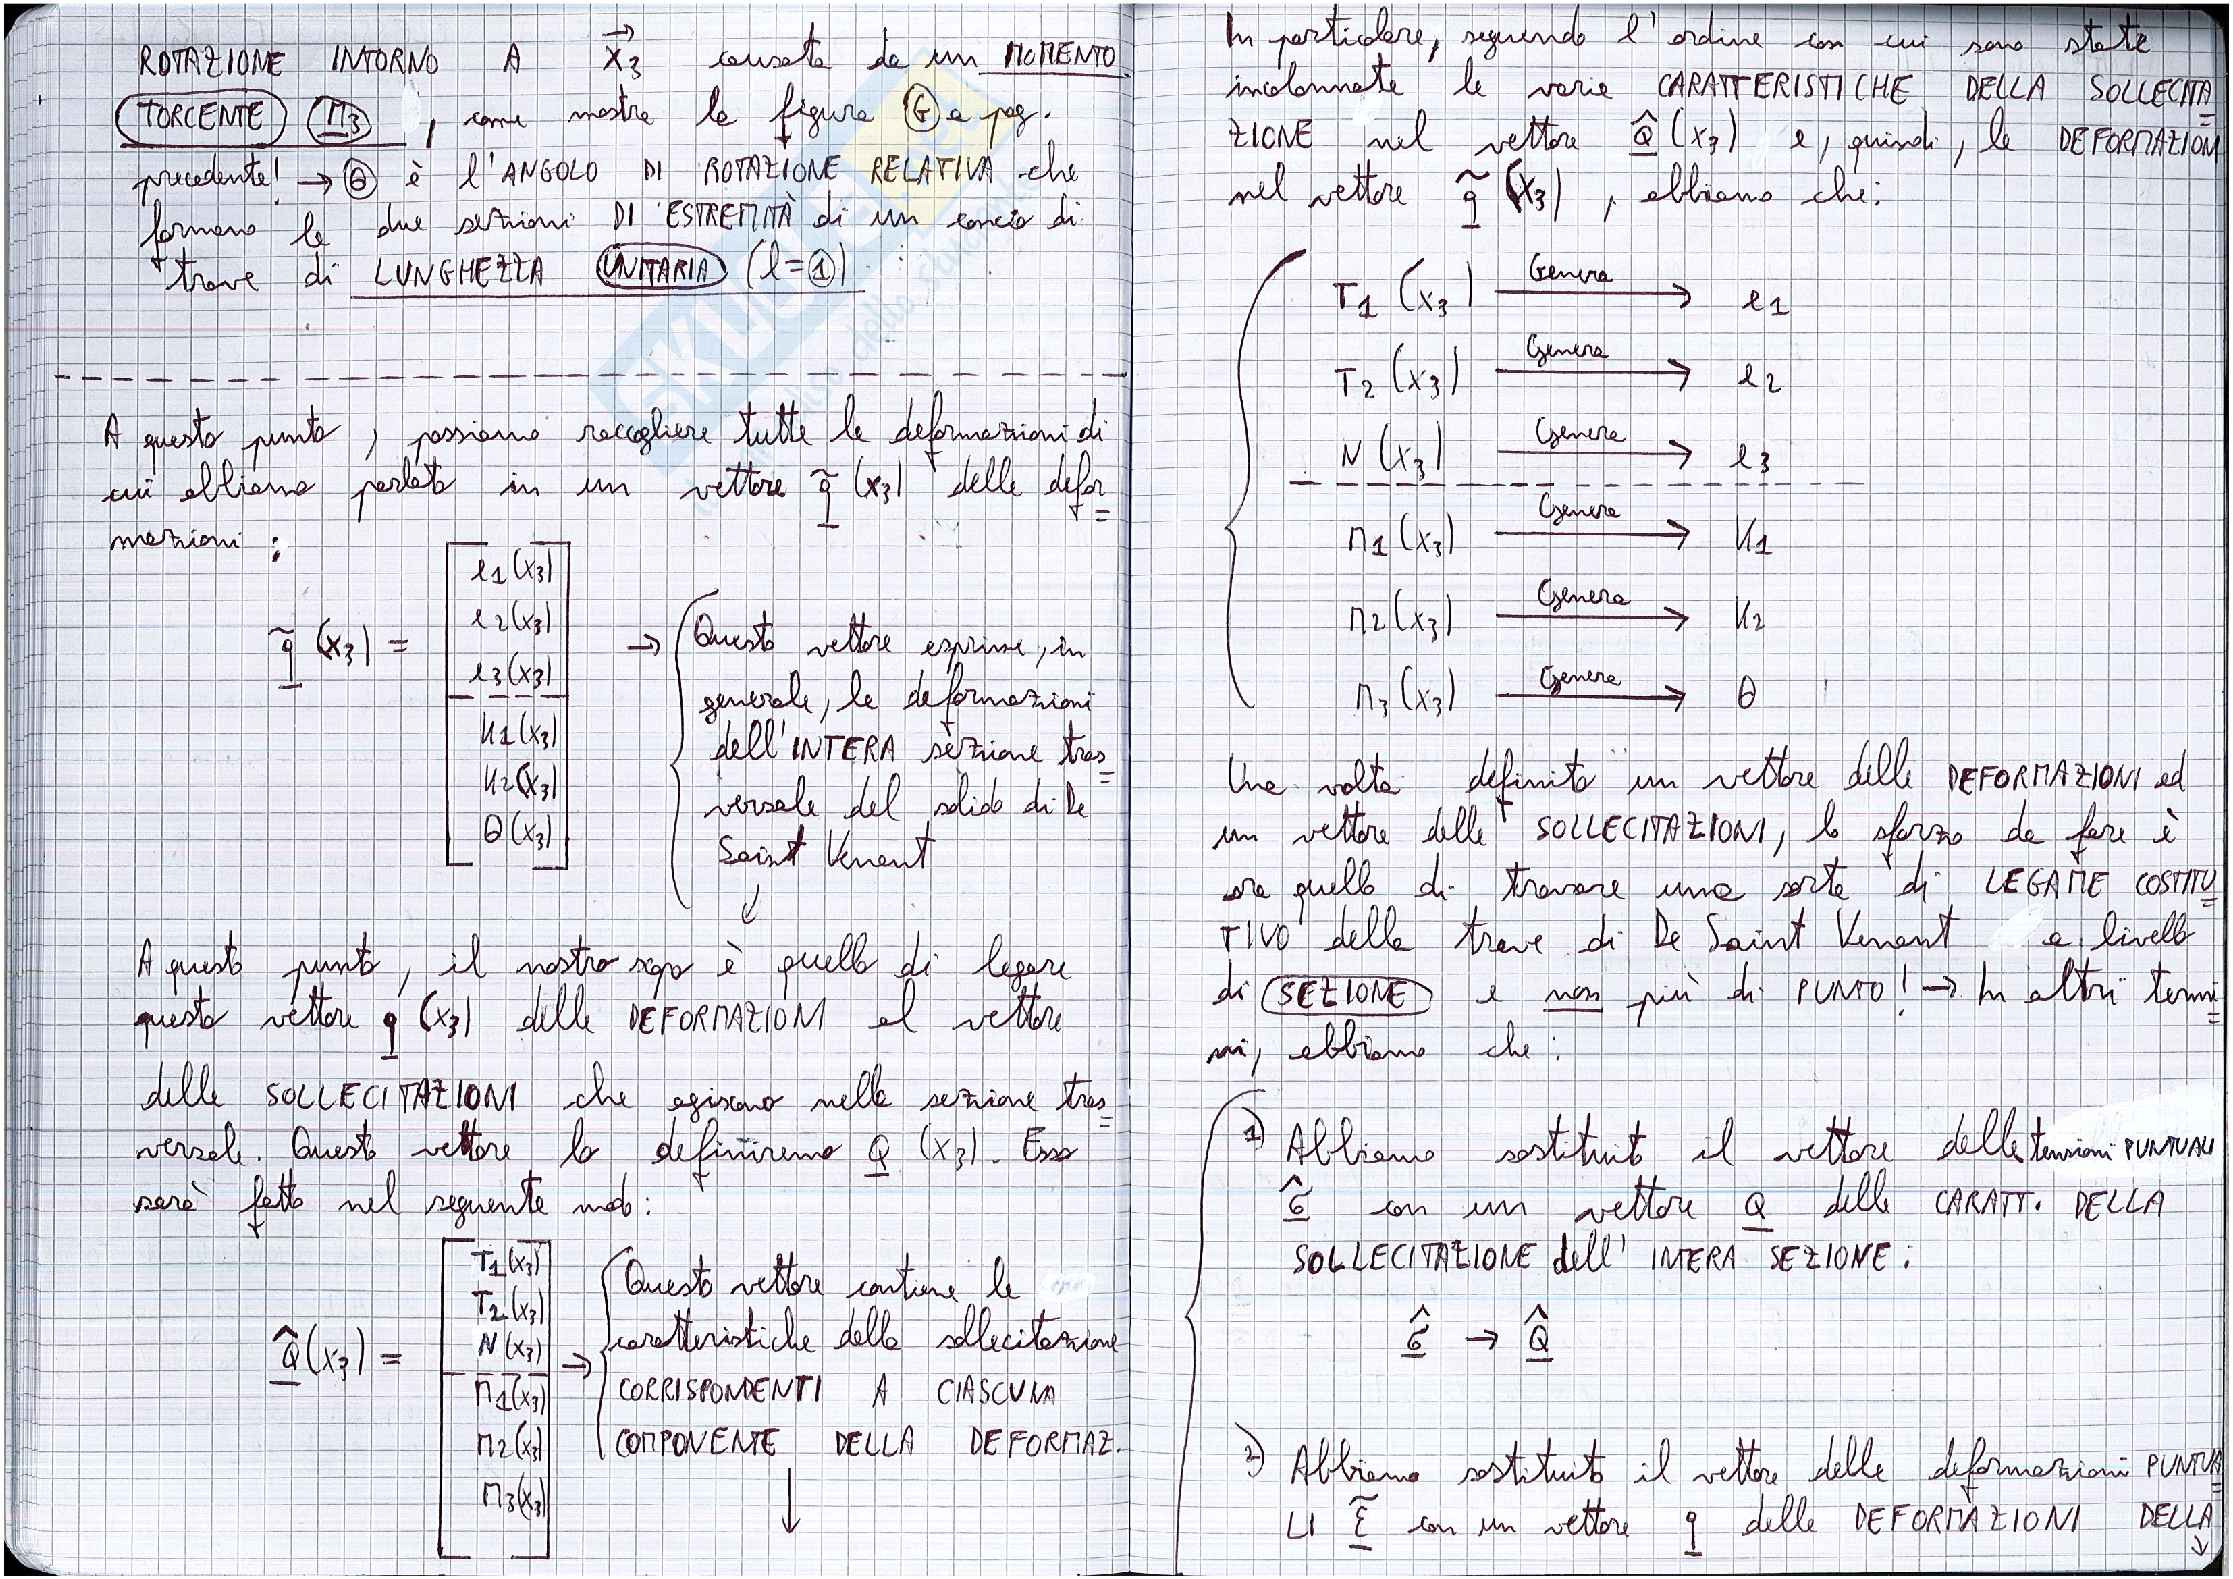 ROTAZIONE INTORNO A x₃ causata da un MOMENTO
TORCENTE M₃, come mostra la figura G a pag.
precedente! → θ è l'ANGOLO DI ROTAZIONE RELATIVA che
formano le due sezioni DI ESTREMITÀ di un concio di
trave di LUNGHEZZA UNITARIA (l=1)
A questo punto, possiamo raccogliere tutte le deformazioni di
cui abbiamo parlato in un vettore q̃(x₃) delle defor=
mazioni:
q̃(x₃) =
e1(x₃)
e2(x₃)
e3(x₃)
K1(x₃)
K2(x₃)
θ(x₃)
→ Questo vettore esprime, in
generale, le deformazioni
dell'INTERA sezione tras=
versale del solido di De
Saint Venant
↓
A questo punto, il nostro scopo è quello di legare
questo vettore q(x₃) delle DEFORMAZIONI al vettore
delle SOLLECITAZIONI che agiscono nella sezione tras=
versale. Questo vettore lo definiremo Q(x₃). Esso
sarà fatto nel seguente modo:
Q̂(x₃) =
T1(x₃)
T2(x₃)
N(x₃)
M1(x₃)
M2(x₃)
M3(x₃)
→ Questo vettore contiene le
caratteristiche della sollecitazione
CORRISPONDENTI A CIASCUNA
COMPONENTE DELLA DEFORMAZ.
↓
In particolare, seguendo l'ordine con cui sono state
incolonnate le varie CARATTERISTICHE DELLA SOLLECITA=
ZIONE nel vettore Q̂(x₃) e, quindi, le DEFORMAZIONI
nel vettore q̃(x₃), abbiamo che:
T1(x₃) Genera → e1
T2(x₃) Genera → e2
N(x₃) Genera → e3
M1(x₃) Genera → K1
M2(x₃) Genera → K2
M3(x₃) Genera → θ
Una volta definito un vettore delle DEFORMAZIONI ed
un vettore delle SOLLECITAZIONI, lo sforzo da fare è
ora quello di trovare una sorta di LEGAME COSTITU=
TIVO della trave di De Saint Venant a livello
di SEZIONE e non più di PUNTO! → In altri termi=
ni, abbiamo che:
1) Abbiamo sostituito il vettore delle tensioni PUNTUALI
σ̂ con un vettore Q delle CARATT. DELLA
SOLLECITAZIONE dell'INTERA SEZIONE:
σ̂ → Q̂
2) Abbiamo sostituito il vettore delle deformazioni PUNTUA=
LI ε̃ con un vettore q delle DEFORMAZIONI DELLA
↓